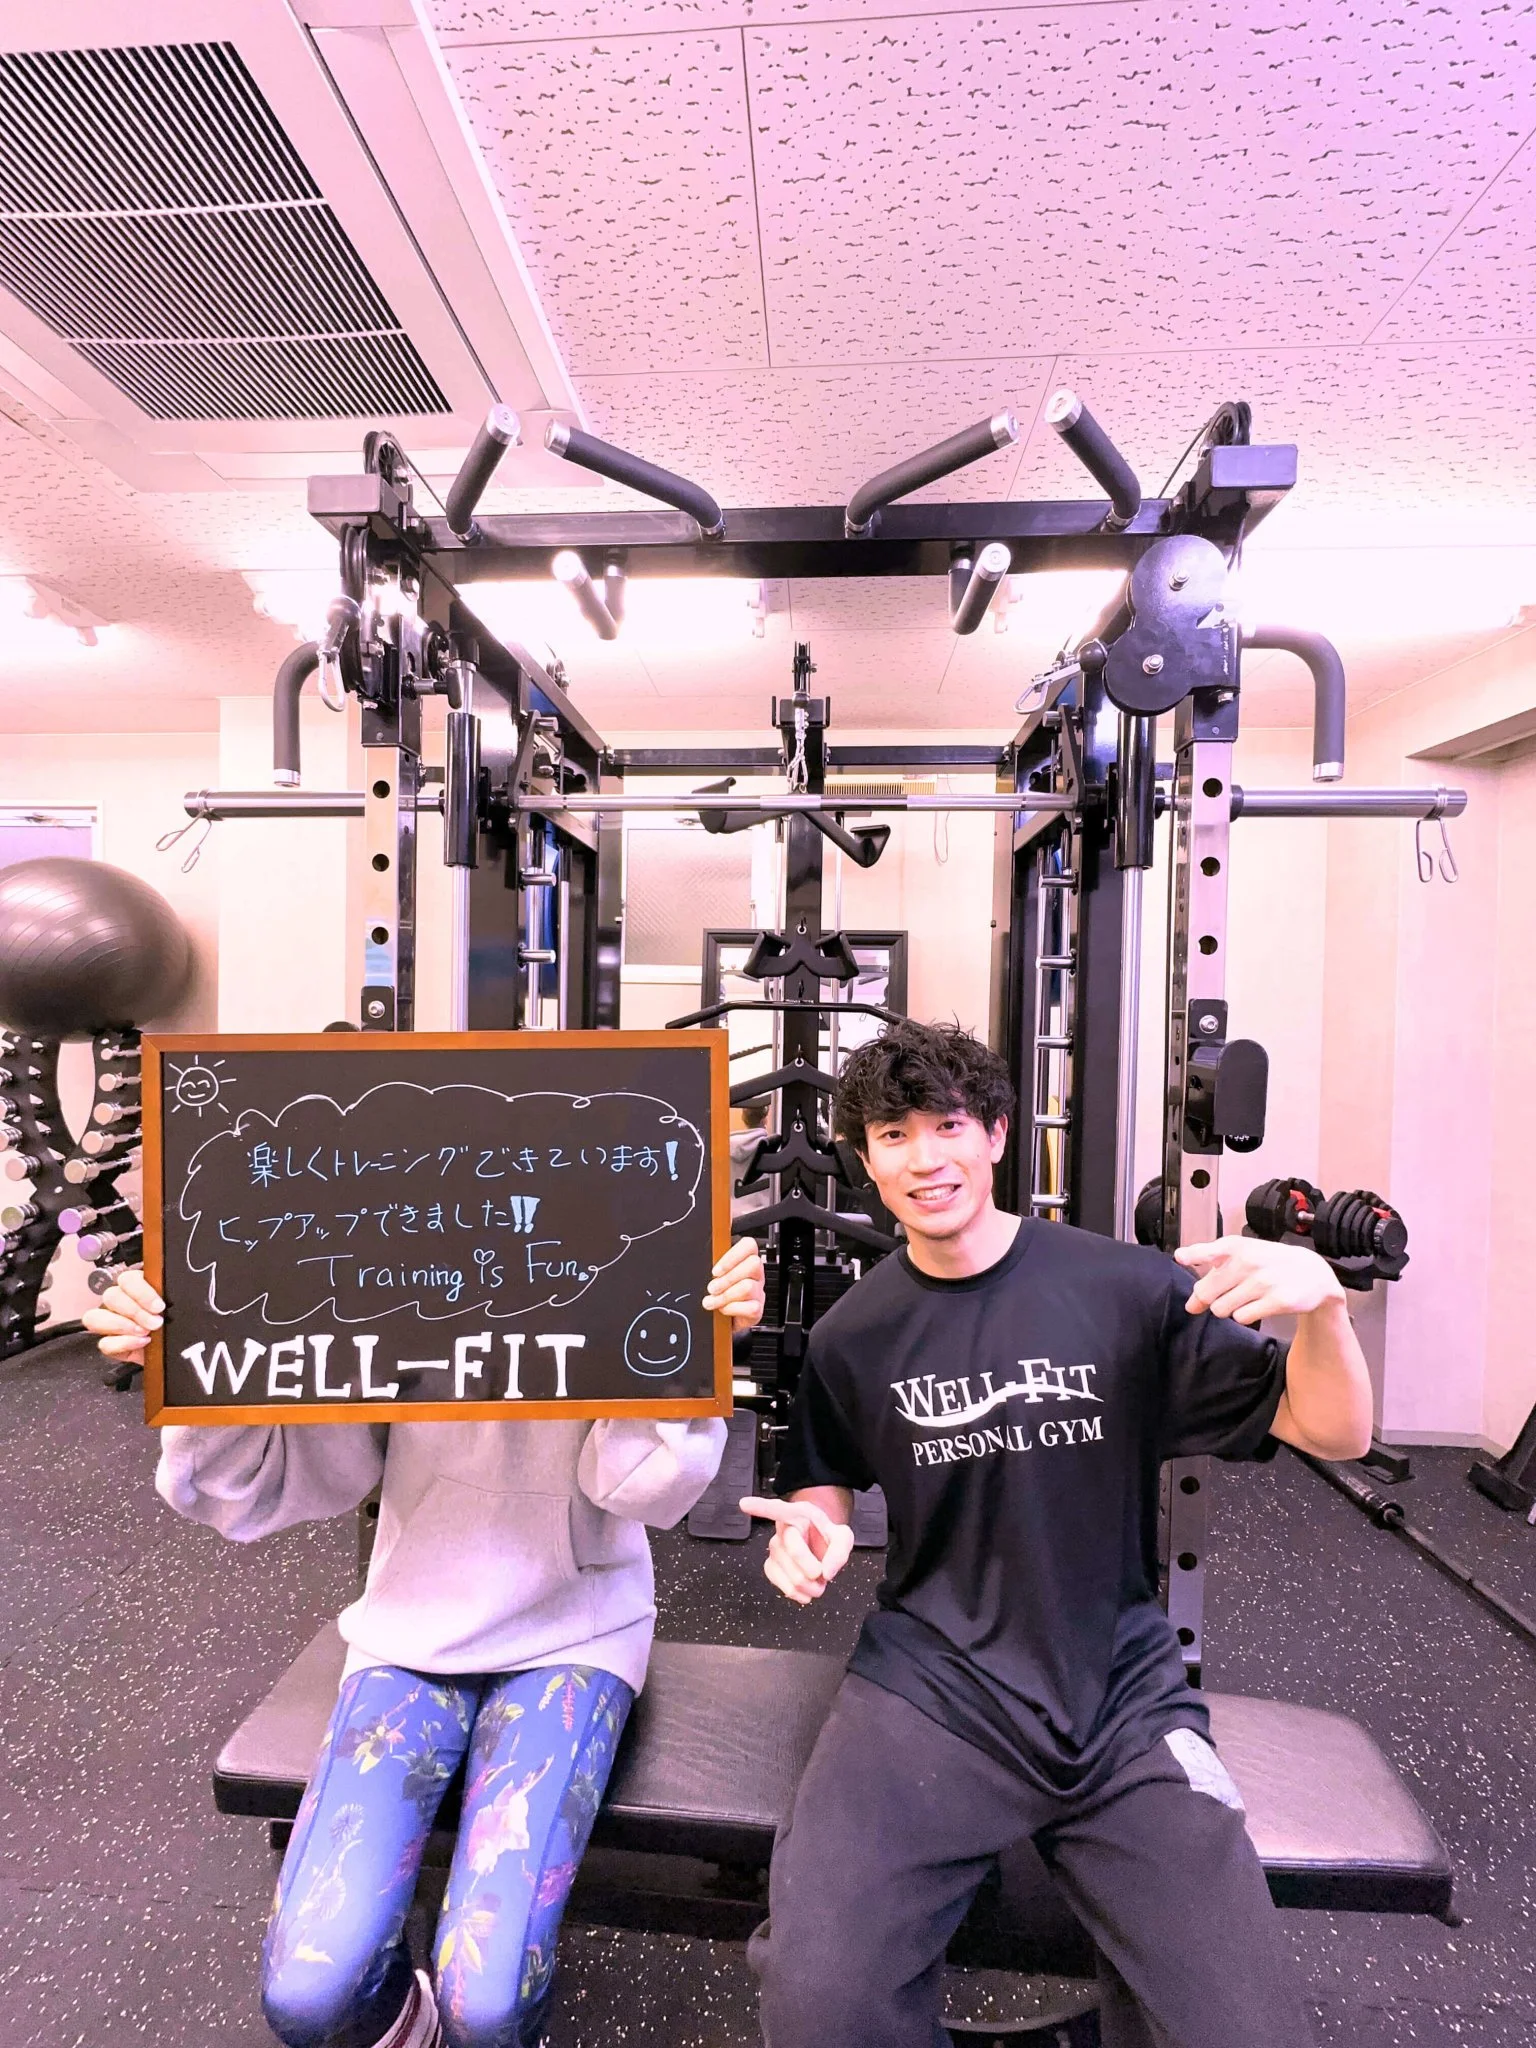 楽しくトレーニングできています!
ヒップアップできました!!
Training is Fun.
WELL-FIT
WELL-FIT
PERSONAL GYM